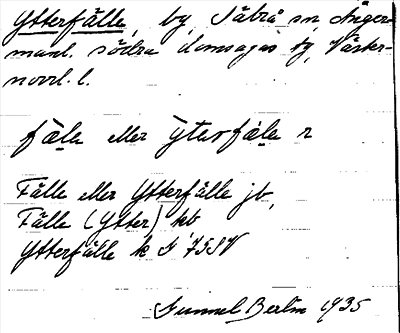 Ytterfälle, by, Säbrå sn, Ånger-
manl. södra domsagas tg, Väster-
norrl. l.
fäle eller ýterfäle r
Fälle eller Ytterfälle jb,
Fälle (Ytter) kb
Ytterfälle k
Gunnel Berlin 1935